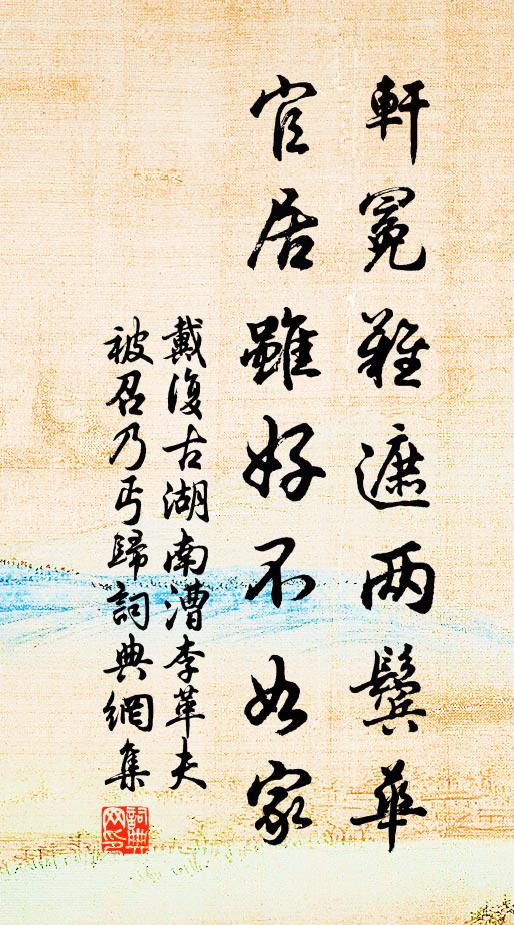 軒冕難遮两鬢華
官居雖好不如家
戴復古湖南漕李革夫
被召乃丐歸詞典網集
詞典网印